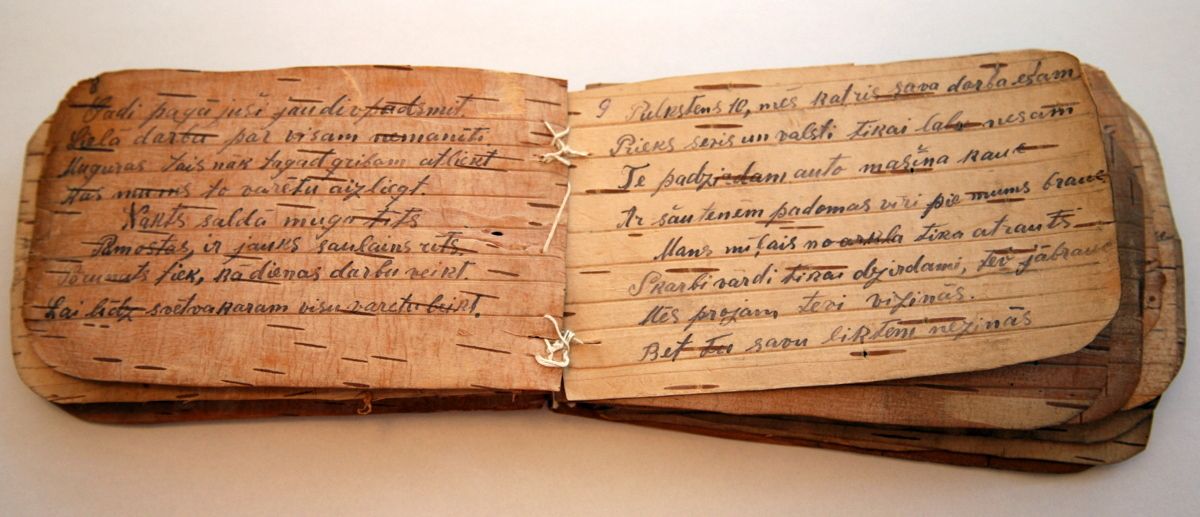 8
Gadi pagājuši jau divpadsmit,
Lielā darbā par visam nemanīti
Muguras tais nāk tagad gribam atliekt
Kas mums to varētu aizliegt.
Nakts salda mūgo tīts
Pamostas, ir jauks saulains rīts,
tiek, kā dienas darbu veikt
Lai līdz svētvakaram visu varētu beikt.
9 Pulkstens 10, mēs katris sava darbā esam
Prieks siris un valsti tikai labu nesam
Te padzirdam auto mašīna kauc
Ar šautenēm padomas vīri pie mums brauc
Mans mīļais no arkla tika atrauts
Skarbi vārdi tikai dzirdami, tev jābrauc
Mēs projam tevi vizinās.
Bet tu savu likteni nezinās